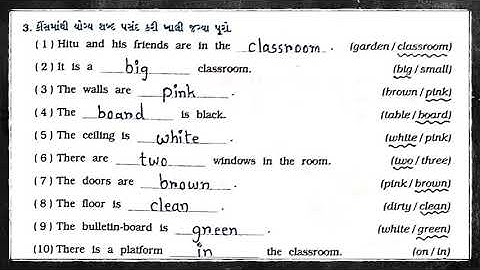 3. કૌંસમાંથી યોગ્ય શબ્દ પસંદ કરી ખાલી જગ્યા પૂરો.
(1) Hitu and his friends are in the classroom. (garden / classroom)
(2) It is a big classroom. (big / small)
(3) The walls are pink. (brown / pink)
(4) The board is black. (table / board)
(5) The ceiling is white. (white / pink)
(6) There are two windows in the room. (two / three)
(7) The doors are brown. (pink / brown)
(8) The floor is clean. (dirty / clean)
(9) The bulletin-board is green. (white / green)
(10) There is a platform in the classroom. (on / in)